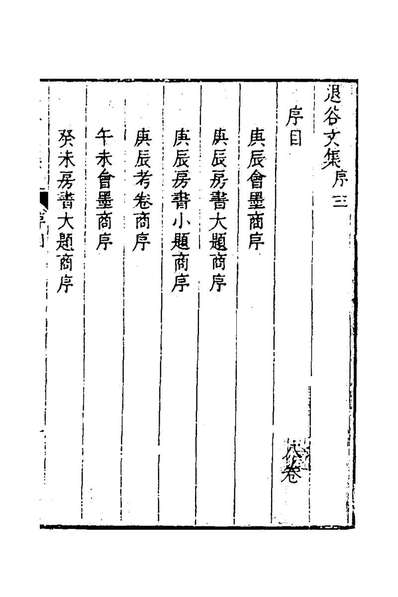 退谷文集序三
序目
八卷
庚辰會墨商序
庚辰房書大題商序
庚辰房書小題商序
庚辰考卷商序
午未會墨商序
癸未房書大題商序